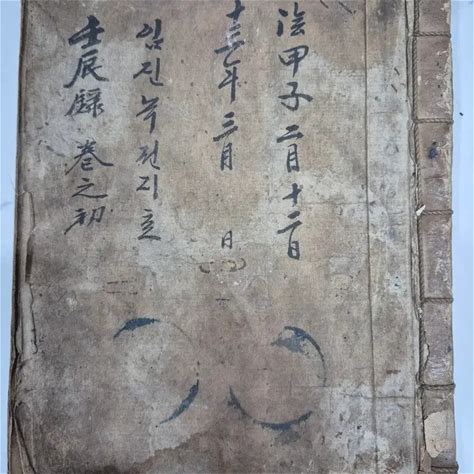 陰甲子二月十二日
十三年三月 日
임진녹권지초
壬辰錄 卷之初